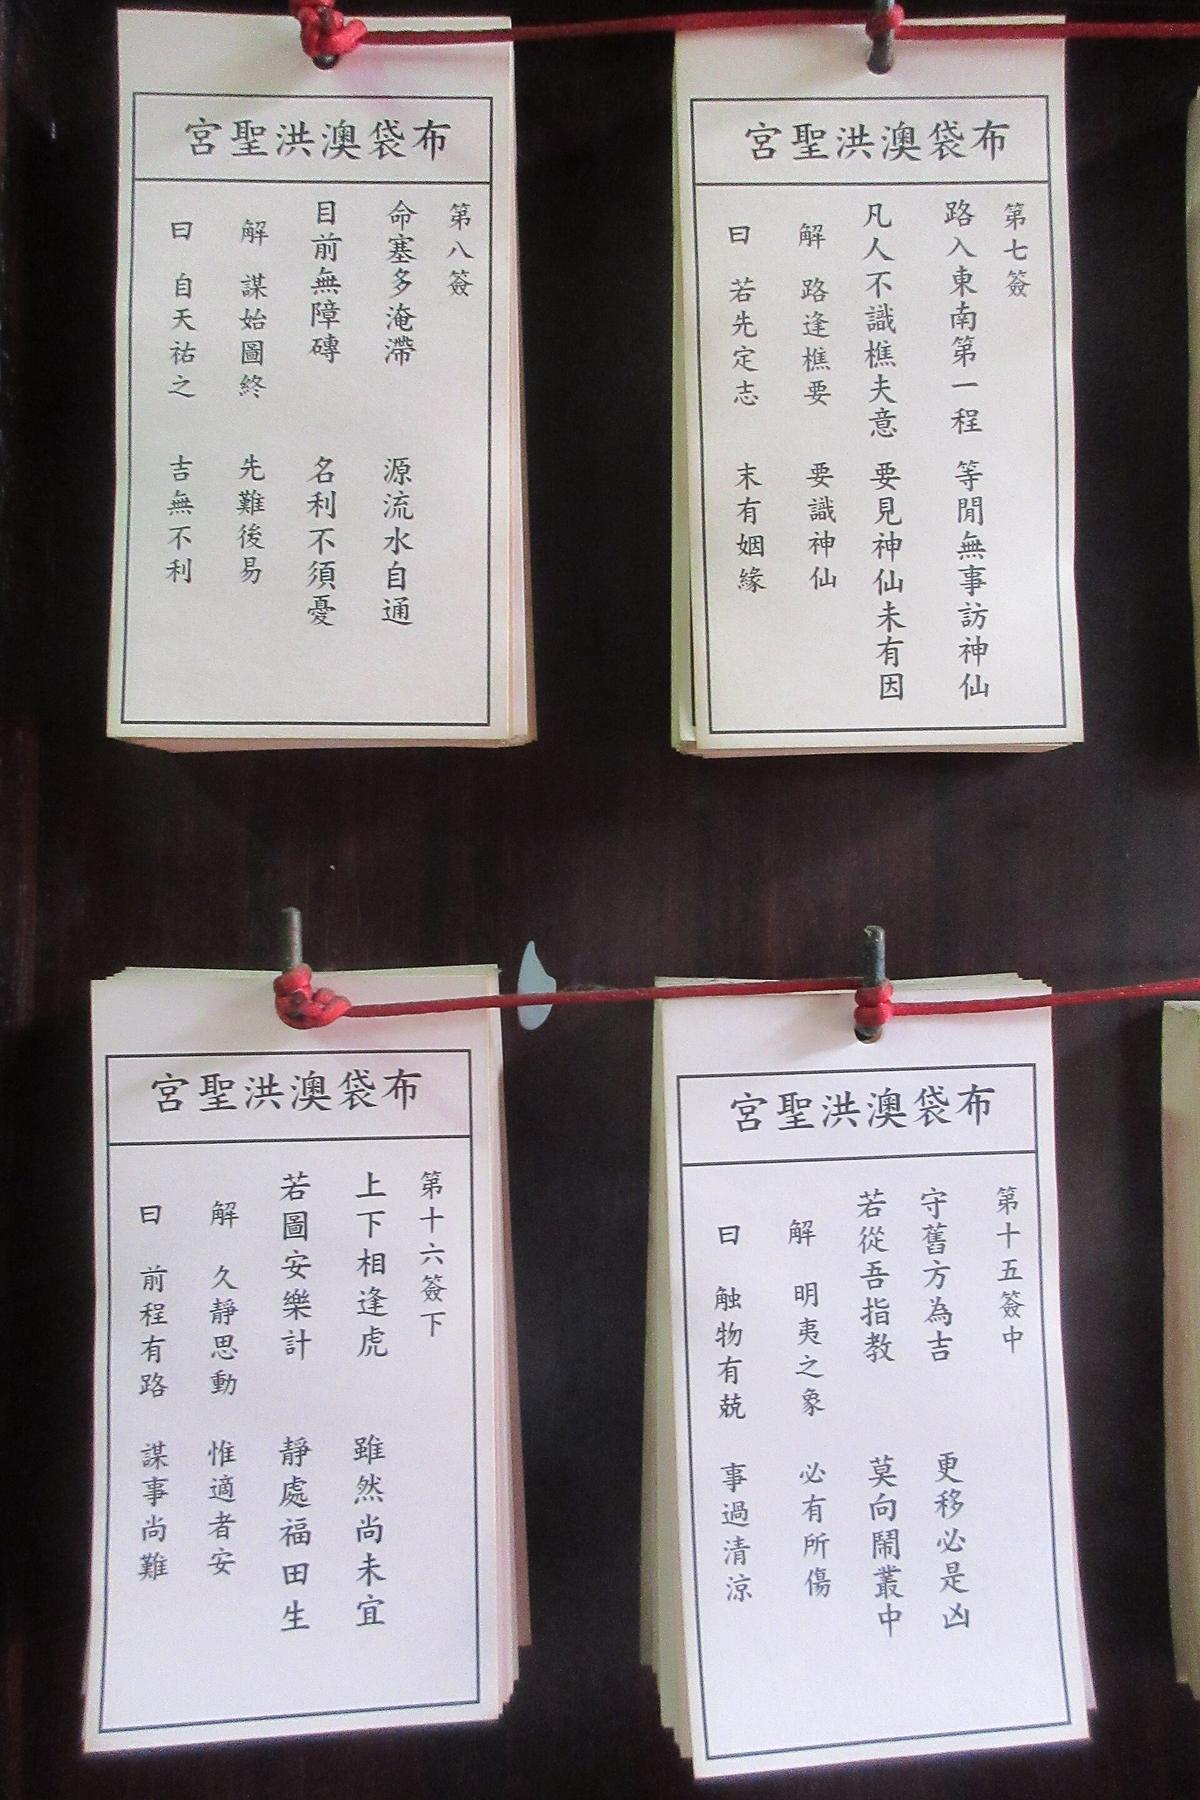 布袋澳洪聖宮
第七簽
路入東南第一程 等閒無事訪神仙
凡人不識樵夫意 要見神仙未有因
解 路逢樵要 要識神仙
曰 若先定志 末有姻緣
布袋澳洪聖宮
第八簽
命塞多淹滯 源流水自通
目前無障磚 名利不須憂
解 謀始圖終 先難後易
曰 自天祐之 吉無不利
布袋澳洪聖宮
第十五簽中
守舊方為吉 更移必是凶
若從吾指教 莫向鬧叢中
解 明夷之象 必有所傷
曰 触物有兢 事過清涼
布袋澳洪聖宮
第十六簽下
上下相逢虎 雖然尚未宜
若圖安樂計 靜處福田生
解 久靜思動 惟適者安
曰 前程有路 謀事尚難